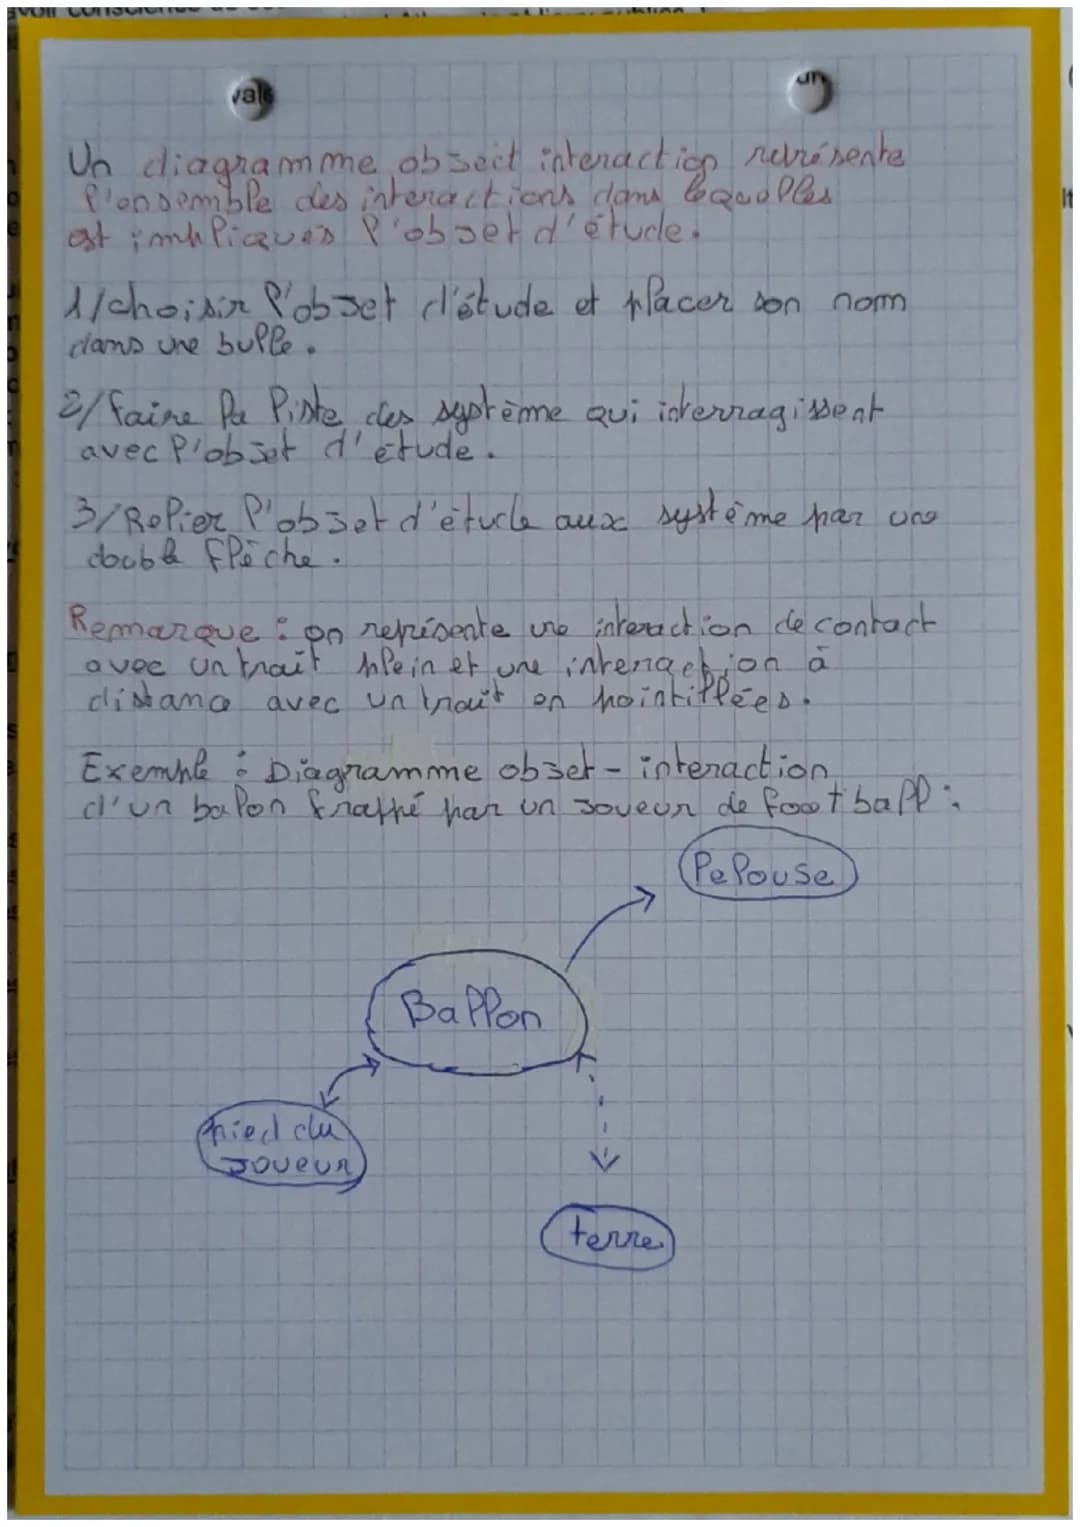 vale
un
Un diagramme objeit interaction représente
l'ensemble des interactions dans lequelles
est impliqués l'objet d'étude.
1/choisir l'objet d'étude et placer son nom
dans une bulle.
2/ faire la liste des système qui interragissent
avec l'objet d'étude.
3/Relier l'objet d'étude aux système par une
double flèche.
Remarque : on représente une interaction de contact
avec un trait plein et une interaction à
distance avec un trait en pointillées.
Exemple : Diagramme objet - interaction
d'un balon frappé par un joueur de football :
Pelouse
Ballon
pied du
joueur
terre